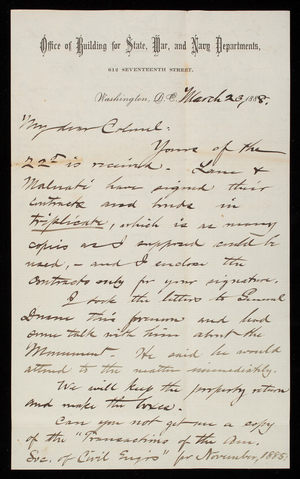 Office of Building for State, War, and Navy Departments,
612 SEVENTEENTH STREET,
Washington, D.C. March 23, 1888.
My dear Colonel:
Yours of the
22d is received. Lane &
Malnati have signed their
contracts and bonds in
triplicate, which is as many
copies as I supposed could be
used, – and I enclose the
contracts only for your signature.
I took the letters to General
Duane this forenoon and had
some talk with him about the
Monument. He said he would
attend to the matter immediately.
We will keep the property return
and make the boxes.
Can you not get me a copy
of the "Transactions of the Am.
Soc. of Civil Engrs" for November, 1885.